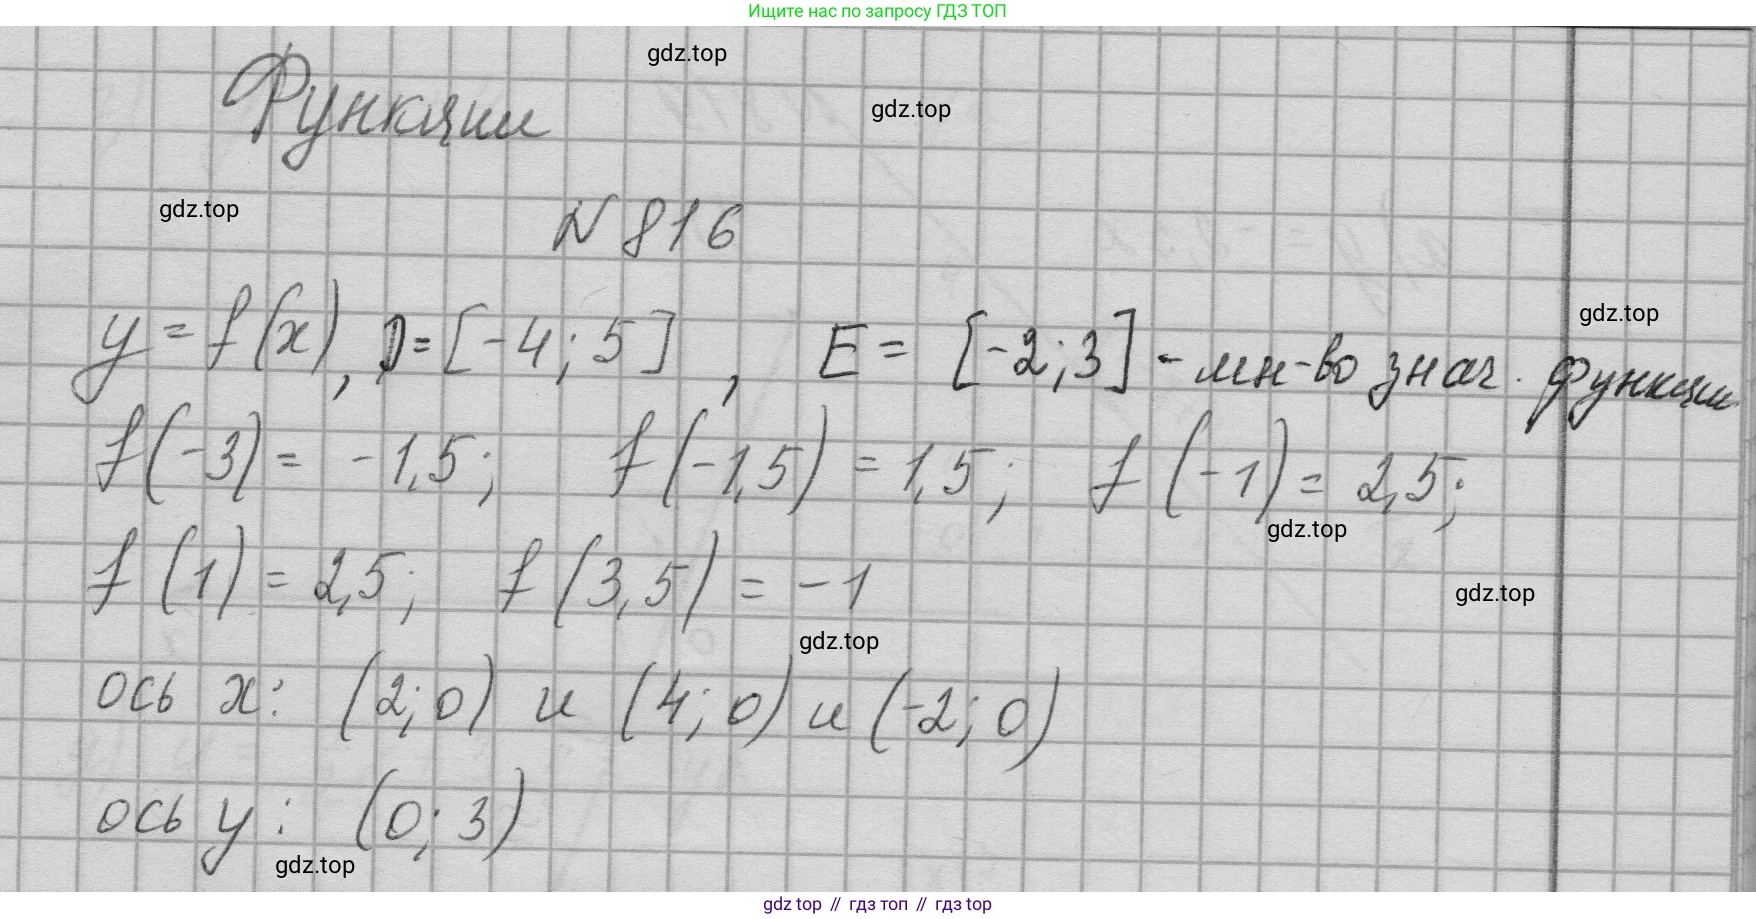 Ищите нас по запросу ГДЗ ТОП
gdz.top
Функции
gdz.top
gdz.top
N 816
gdz.top
y = f(x), D = [-4; 5], E = [-2; 3] - мн-во знач. функции
f(-3) = -1,5; f(-1,5) = 1,5; f(-1) = 2,5;
gdz.top
f(1) = 2,5; f(3,5) = -1
gdz.top
gdz.top
ось x: (2; 0) и (4; 0) и (-2; 0)
ось y: (0; 3)
gdz.top
gdz top // гдз топ // гдз top